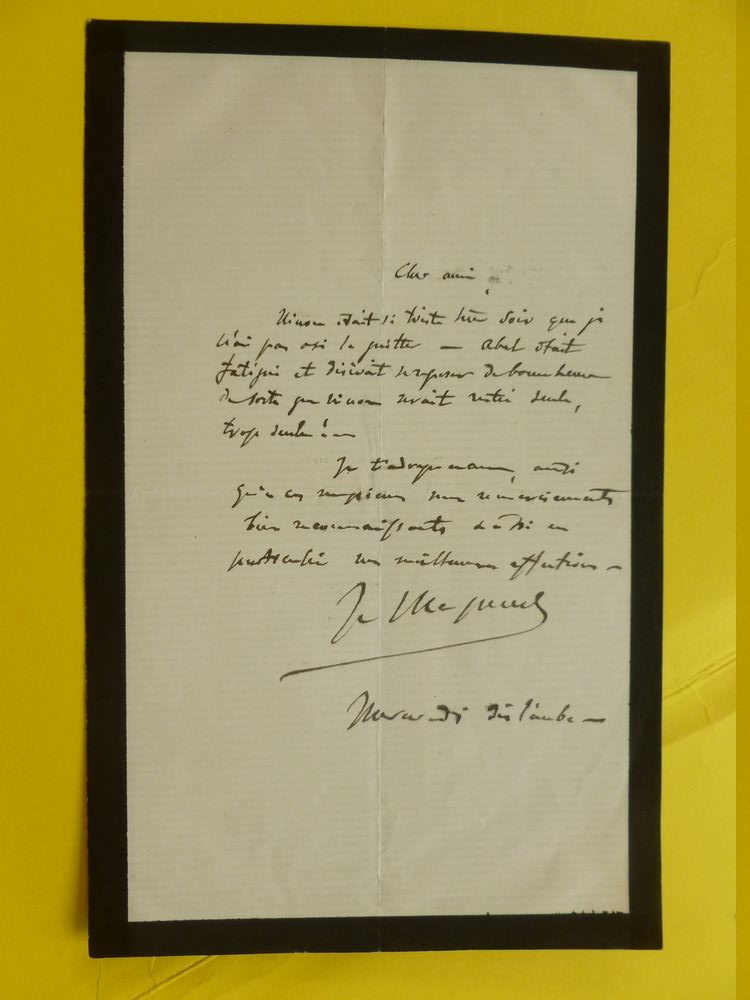 Cher ami,
Ninon était si triste hier soir que je
n'ai pas osé la quitter — Abel était
fatigué et désirait se reposer de bonne heure
de sorte que Ninon serait restée seule,
trop seule!—
Je t'adresse, ainsi
qu'à ces messieurs mes remerciements
bien reconnaissants et à toi en
particulier mes meilleures affections —
Mercredi dès l'aube —